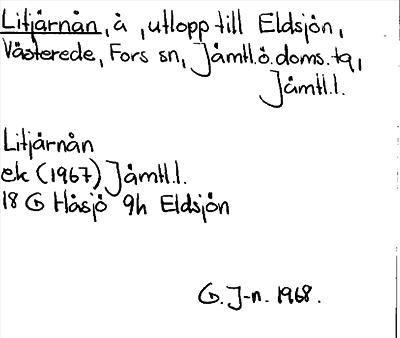 Litjärnån, å, utlopp till Eldsjön,
Västerede, Fors sn, Jämtl.ö.doms.tg,
Jämtl.l.
Litjärnån
ek (1967) Jämtl.l.
18 G Håsjö 9h Eldsjön
G. J-n. 1968.